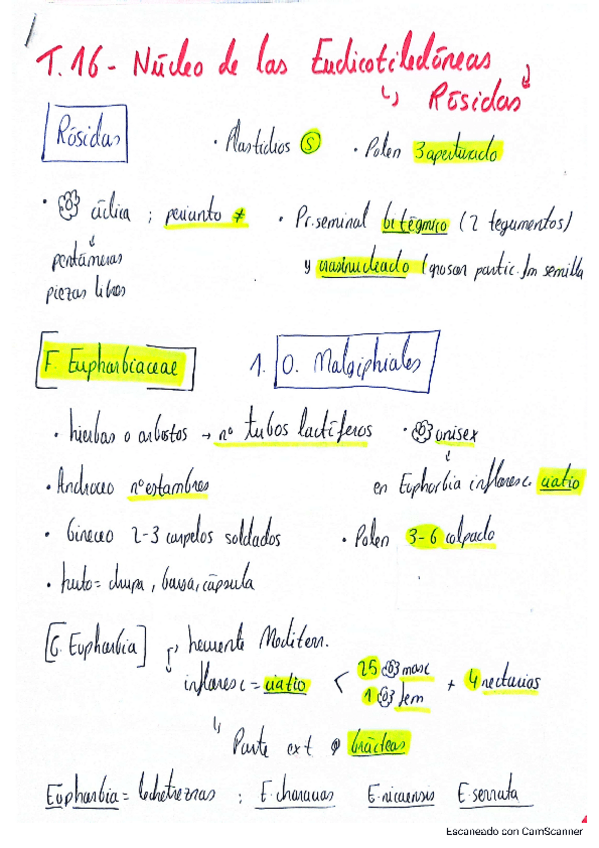 T.16 - Núcleo de las Eudicotiledóneas
↳ Rósidas
Rósidas
· Plastidios S
· Polen 3 aperturado
· cíclica ; perianto *
pentámeras
piezas libres
· Pr. seminal bitégmico (2 tegumentos)
y crasinucleado (grosor partic. fm semilla
F. Euphorbiaceae
1. O. Malpighiales
· hierbas o arbustos → nº tubos lactíferos
· unisex
en Euphorbia infloresc. ciatio
· Androceo nº estambres
· Gineceo 2-3 carpelos soldados
· Polen 3-6 colpado
· fruto = drupa, baya, cápsula
[G. Euphorbia]
frecuente Mediterr.
infloresc = ciatio < 25 masc
1 fem
+ 4 nectarios
↳ Parte ext brácteas
Euphorbia = lechetreznas ; E. characias E. nicaensis E. serrata
Escaneado con CamScanner